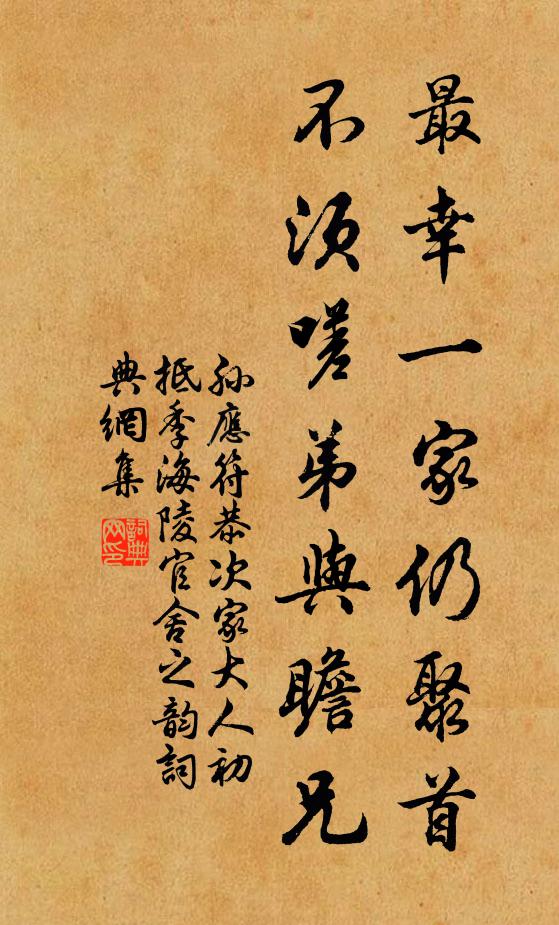 最幸一家仍聚首
不須嗟弟與瞻兄
孫應符恭次家大人初
抵季海陵官舍之韵詞
典網集
詞典
网印